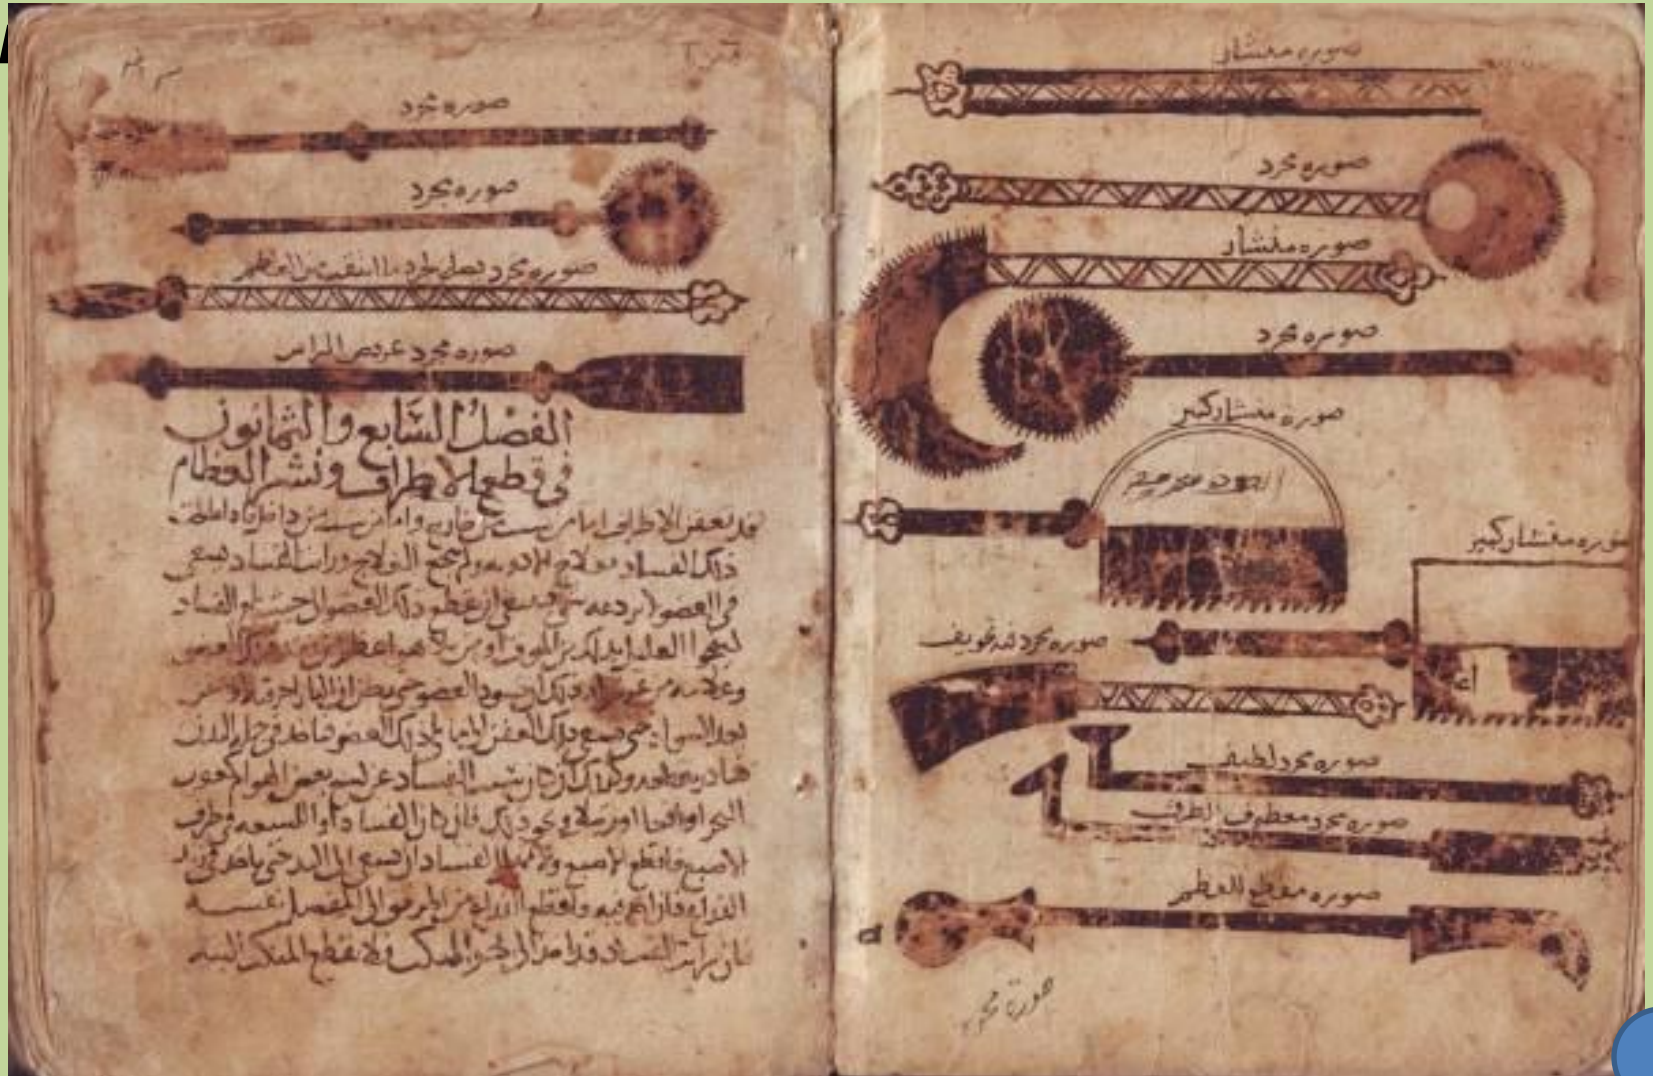 صوره منشار
صوره مجرد
صوره منشار
صوره مجرد
صوره منشار كبير
صوره منشار كبير
صوره مجرد فيه تجويف
صوره مجرد لطيف
صوره مجرد معطوف الطرف
صوره مقطع للعظم
صوره مجرد
صوره مجرد
صوره مجرد يصلح لجرد ما من العظم
صوره مجرد عريض الراس
الفصل السابع والثمانون
في قطع الاطراف ونشر العظام
قد تعفن الاطراف اما من سبب من خارج واما من سبب من داخل فاذا
ذلك الفساد بعلاج الادويه ولم ينجع العلاج ورايت الفساد يسعى
في العضو لا يردعه شي فينبغي ان تقطع ذلك العضو الى حيث الفساد
لينجوا العليل بذلك من الموت او من هي اعظم من ذلك العضو
وعلامه من ذلك ان يسود العضو حتى يظن ان النار احرقته او
بعد السواد حتى يسعى ذلك العفن الى ما يلي ذلك العضو في جملة البدن
فبادر بقطعه وكذلك ان كان سبب الفساد عن لسع بعض الهوام كعقرب
البحر او افعا او رتيلا ونحو ذلك فان كان الفساد او اللسعه في طرف
الاصبع فاقطع الاصبع ولا تمهل الفساد ان يسعى الى اليد حتى ياخذ في زند
الذراع فان اخذ فيه فاقطع الذراع من المرفق الى المفصل نفسه
فان رايت الفساد قد اخذ الى نحو المنكب فلا تقطع المنكب البته